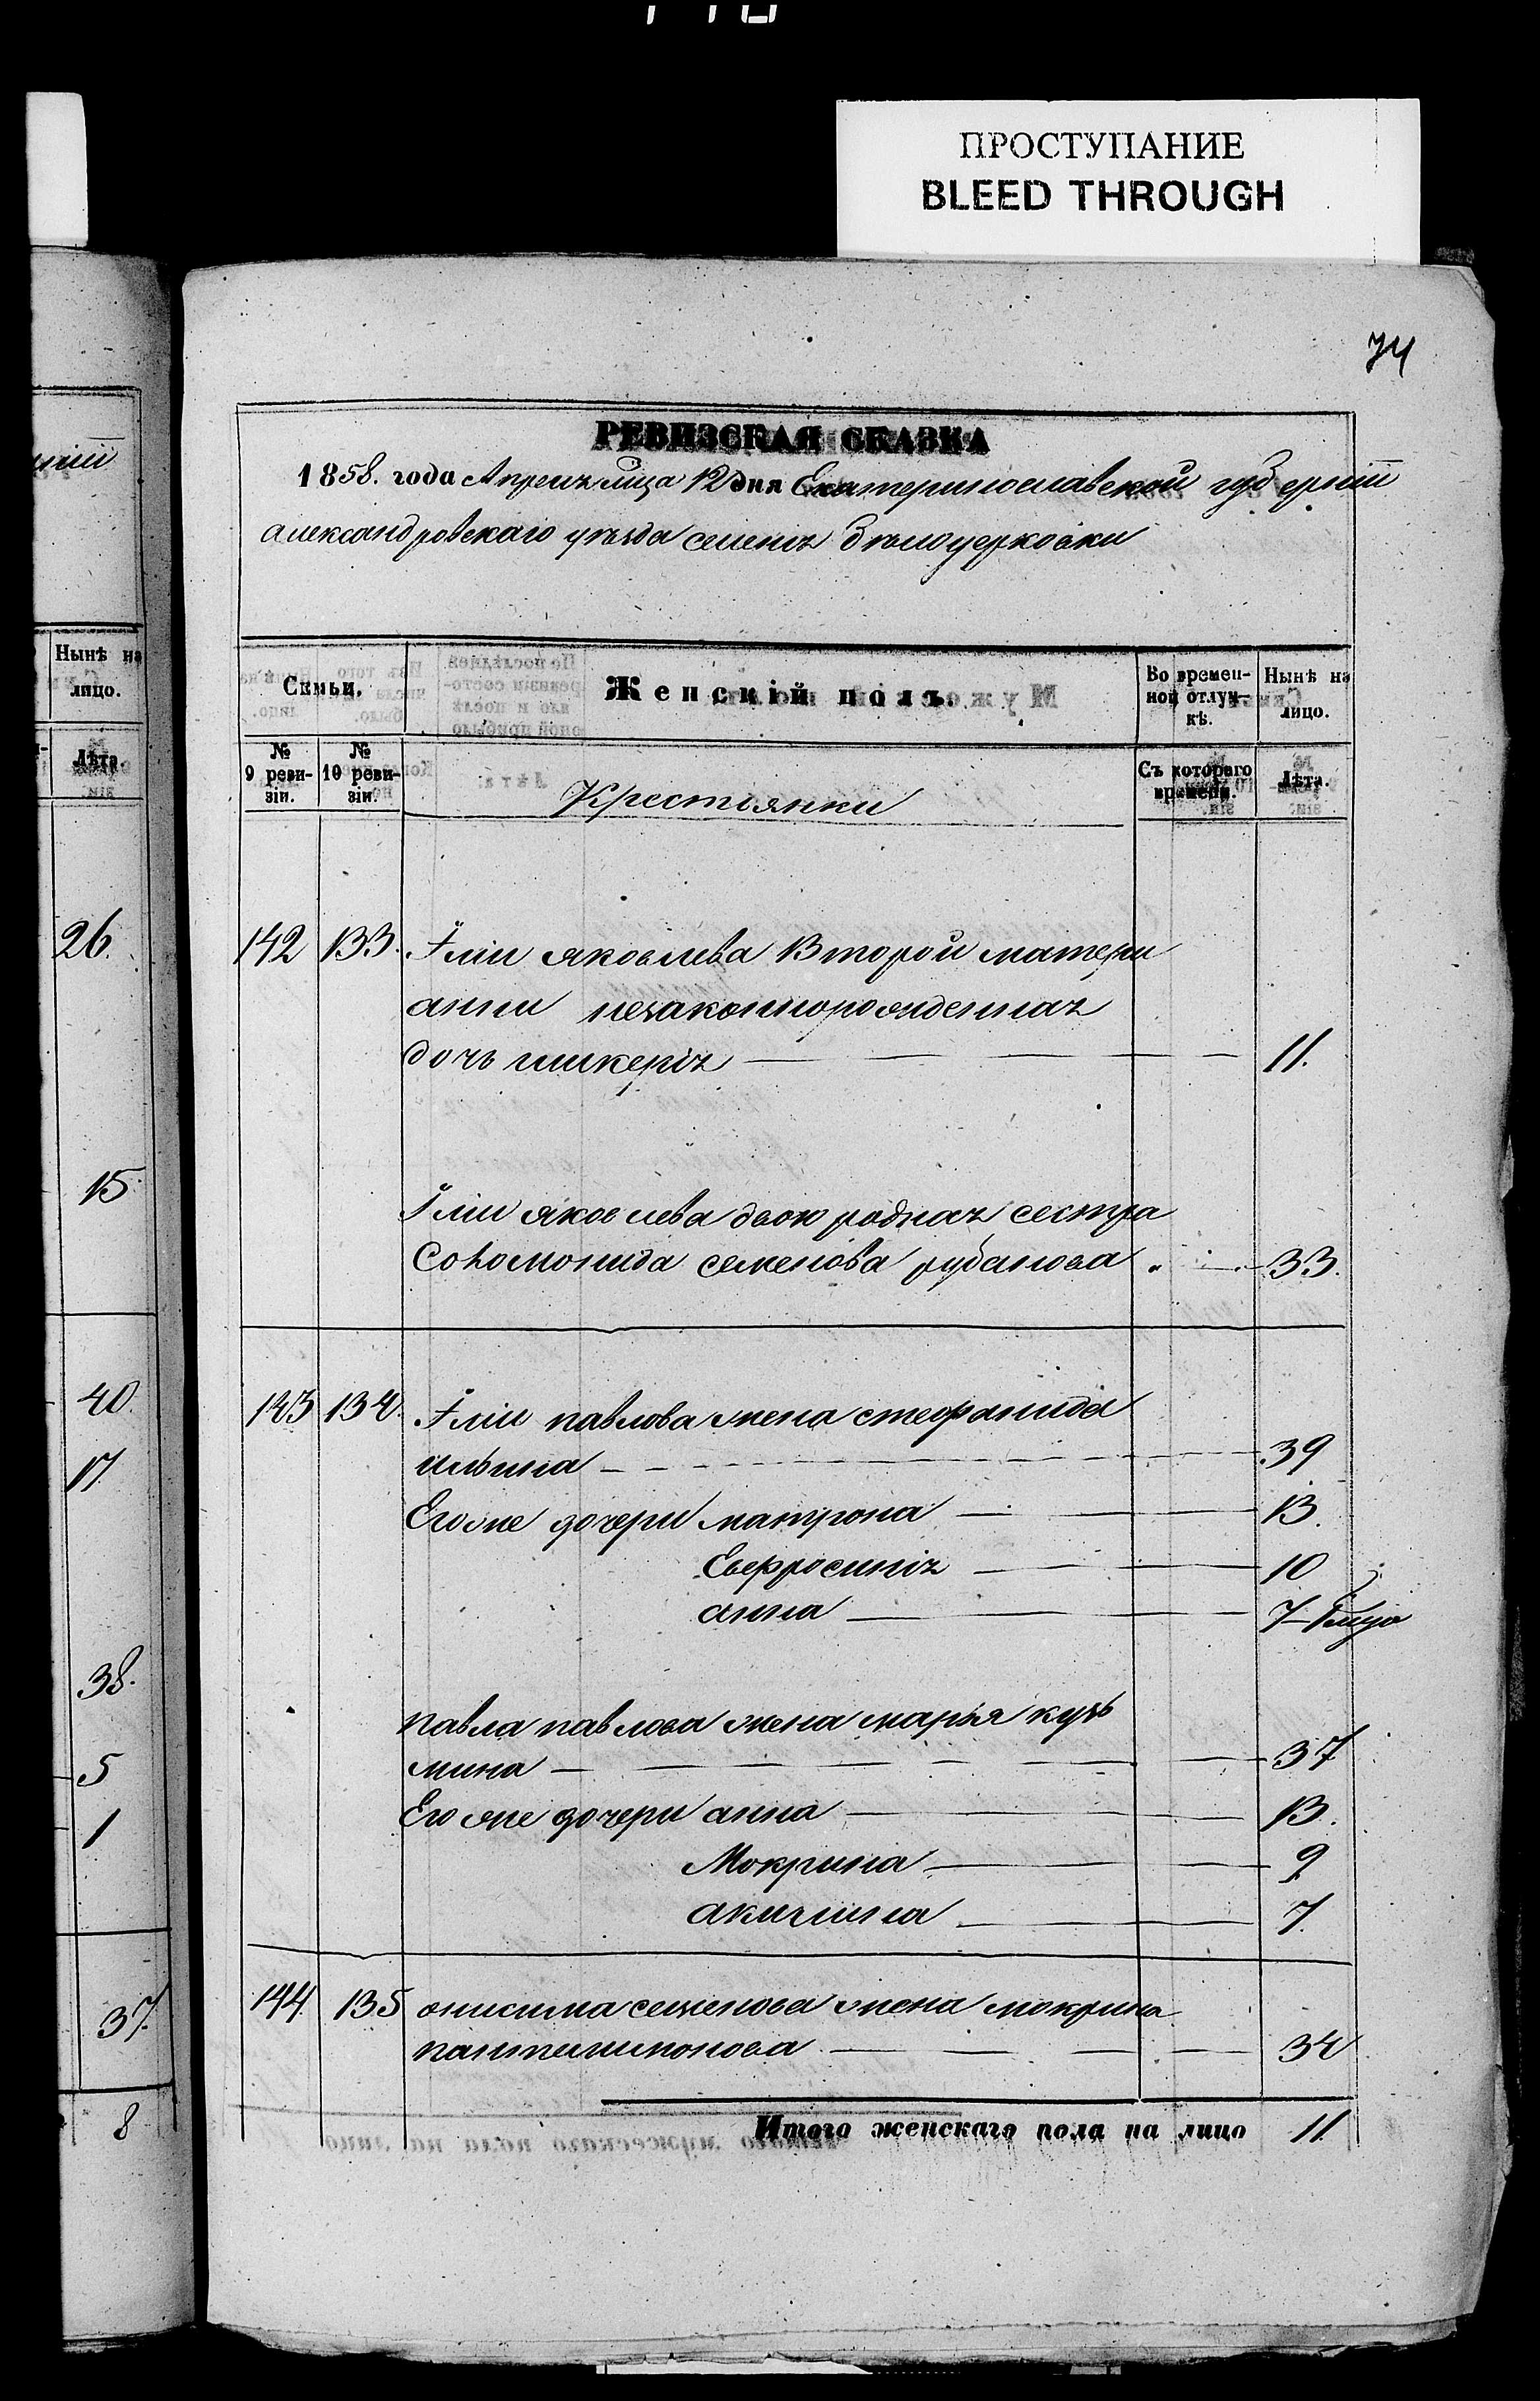 ПРОСТУПАНИЕ
BLEED THROUGH
74
РЕВИЗСКАЯ СКАЗКА
1858. года Апреля мца 12 дня Екатеринославской губерніи
александровскаго уѣзда селенія бѣлоцерковки
Нынѣ на лицо.
Лѣта.
26.
15
40
17
38.
5
1
37.
8
Семьи.
Женскій полъ.
Во времен-
ной отлуч-
кѣ.
Нынѣ на
лицо.
№
9 реви-
зіи.
№
10 реви-
зіи.
Крестьянки
Съ котораго
времени.
Лѣта.
142 133. Іліи яковлева Второй матери
анни незаконнорожденная
дочь гликерія 11.
Іліи яковлева двоюродная сестра
Соломонида семенова рубанова 33.
143 134. Іліи павлова жена стефанида
ильина 39
Его же дочери матрона 13.
Евфросинія 10
анна 7
павла павлова жена марья кузь
мина 37
Его же дочери анна 13.
Мокрина 9
акилина 7.
144 135 онисима семенова жена мокрина
пантилимонова 34
Итого женскаго пола на лицо 11.